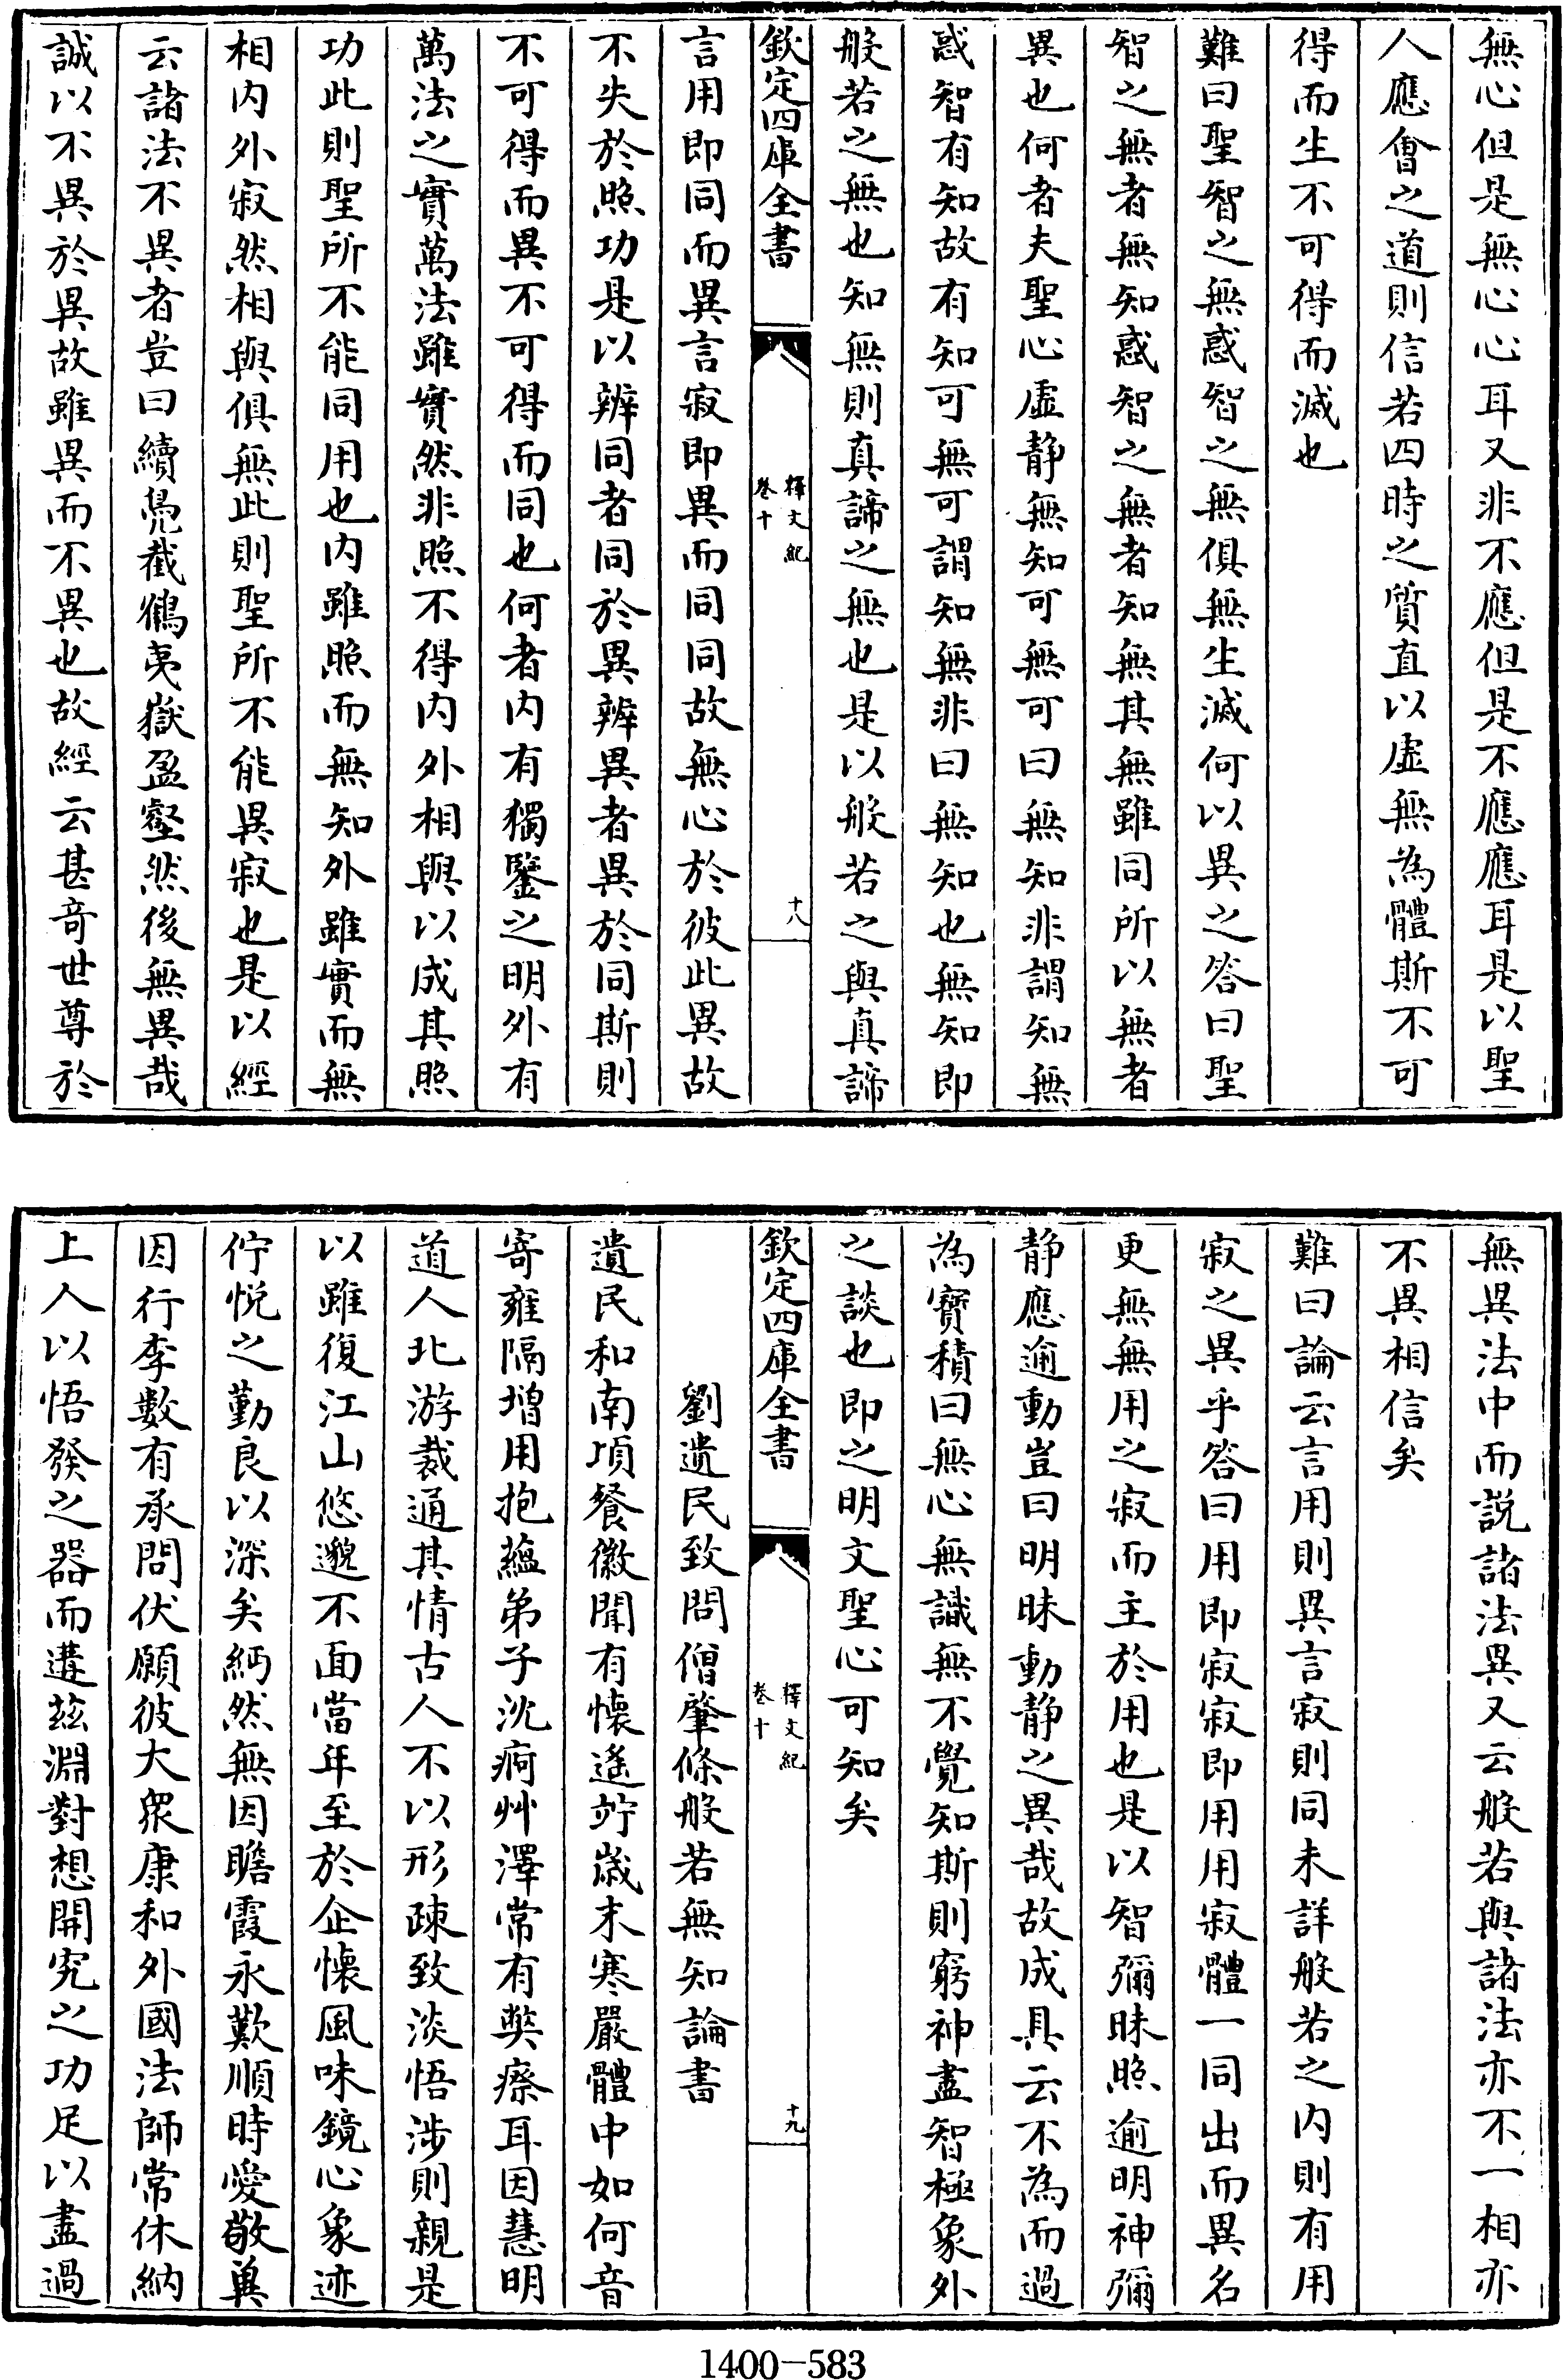 無心但是無心心耳又非不應但是不應應耳是以聖
人應會之道則信若四時之質直以虛無為體斯不可
得而生不可得而滅也
難曰聖智之無惑智之無俱無生滅何以異之答曰聖
智之無者無知惑智之無者知無其無雖同所以無者
異也何者夫聖心虛靜無知可無可曰無知非謂知無
惑智有知故有知可無可謂知無非曰無知也無知即
般若之無也知無則真諦之無也是以般若之與真諦
欽定四庫全書
釋文紀
卷十
十八
言用即同而異言寂即異而同同故無心於彼此異故
不失於照功是以辨同者同於異辨異者異於同斯則
不可得而異不可得而同也何者內有獨鑒之明外有
萬法之實萬法雖實然非照不得內外相與以成其照
功此則聖所不能同用也內雖照而無知外雖實而無
相內外寂然相與俱無此則聖所不能異寂也是以經
云諸法不異者豈曰續鳧截鶴夷嶽盈壑然後無異哉
誠以不異於異故雖異而不異也故經云甚奇世尊於
無異法中而說諸法異又云般若與諸法亦不一相亦
不異相信矣
難曰論云言用則異言寂則同未詳般若之內則有用
寂之異乎答曰用即寂寂即用用寂體一同出而異名
更無無用之寂而主於用也是以智彌昧照逾明神彌
靜應逾動豈曰明昧動靜之異哉故成具云不為而過
為寶積曰無心無識無不覺知斯則窮神盡智極象外
之談也即之明文聖心可知矣
欽定四庫全書
釋文紀
卷十
十九
劉遺民致問僧肇條般若無知論書
遺民和南頃餐徽聞有懷遙竚歲末寒嚴體中如何音
寄雍隔增用抱蘊弟子沈痾艸澤常有獘瘵耳因慧明
道人北游裁通其情古人不以形疎致淡悟涉則親是
以雖復江山悠邈不面當年至於企懷風味鏡心象迹
佇悅之勤良以深矣緬然無因瞻霞永歎順時愛敬兾
因行李數有承問伏願彼大衆康和外國法師常休納
上人以悟發之器而遘茲淵對想開究之功足以盡過
1400-583